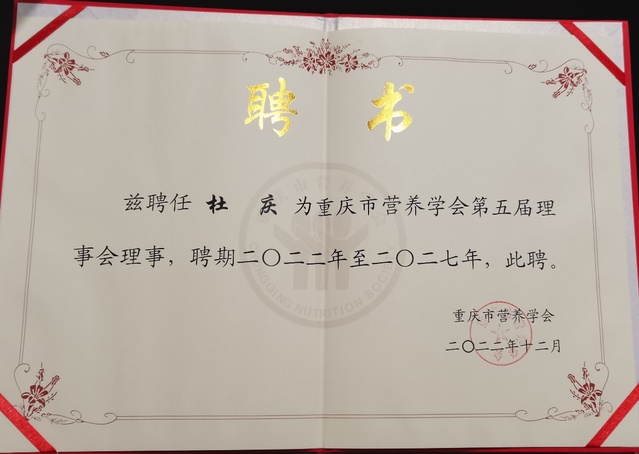 聘 书
兹聘任 杜 庆 为重庆市营养学会第五届理
事会理事，聘期二〇二二年至二〇二七年，此聘。
重庆市营养学会
二〇二二年十二月